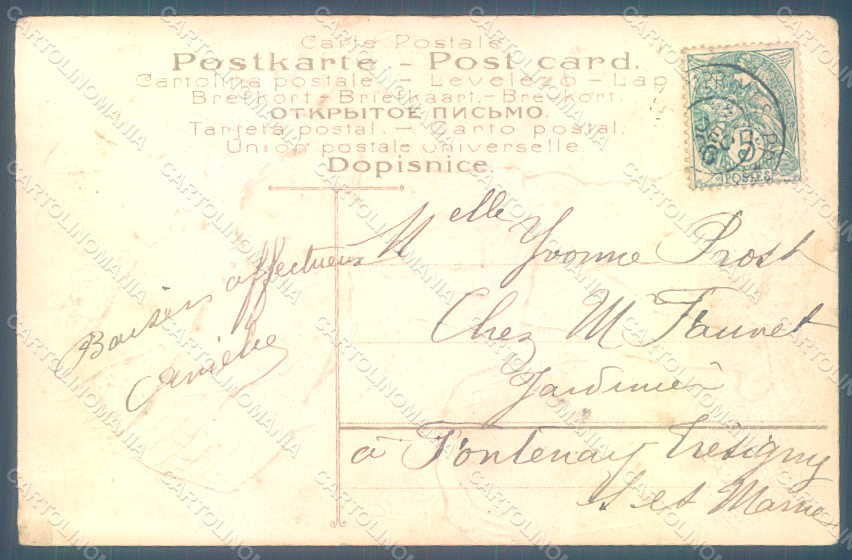 Carte Postale
Postkarte - Post card.
Cartolina postale. - Levelezö - Lap
Brefkort - Briefkaart - Brevkort.
ОТКРЫТОЕ ПИСЬМО.
Tarjeta postal. - Carto postal.
Union postale universelle.
Dopisnice.
POSTES
Baisers affectueux
Melle Yvonne Prost
Chez M Fauvet
Jardinier
à Fontenay Trésigny
S et Marne
CARTOLINOMANIA